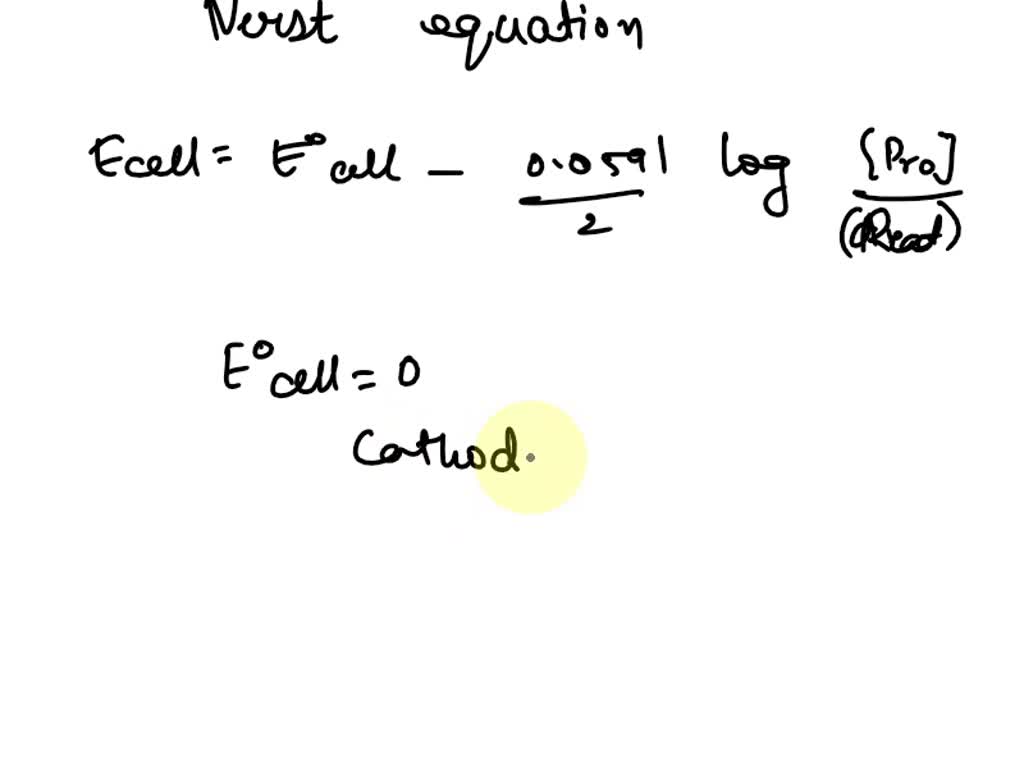 Nerst equation
Ecell = E°cell - 0.0591/2 log {Pro]/(Reat)
E°cell = 0
Cathod